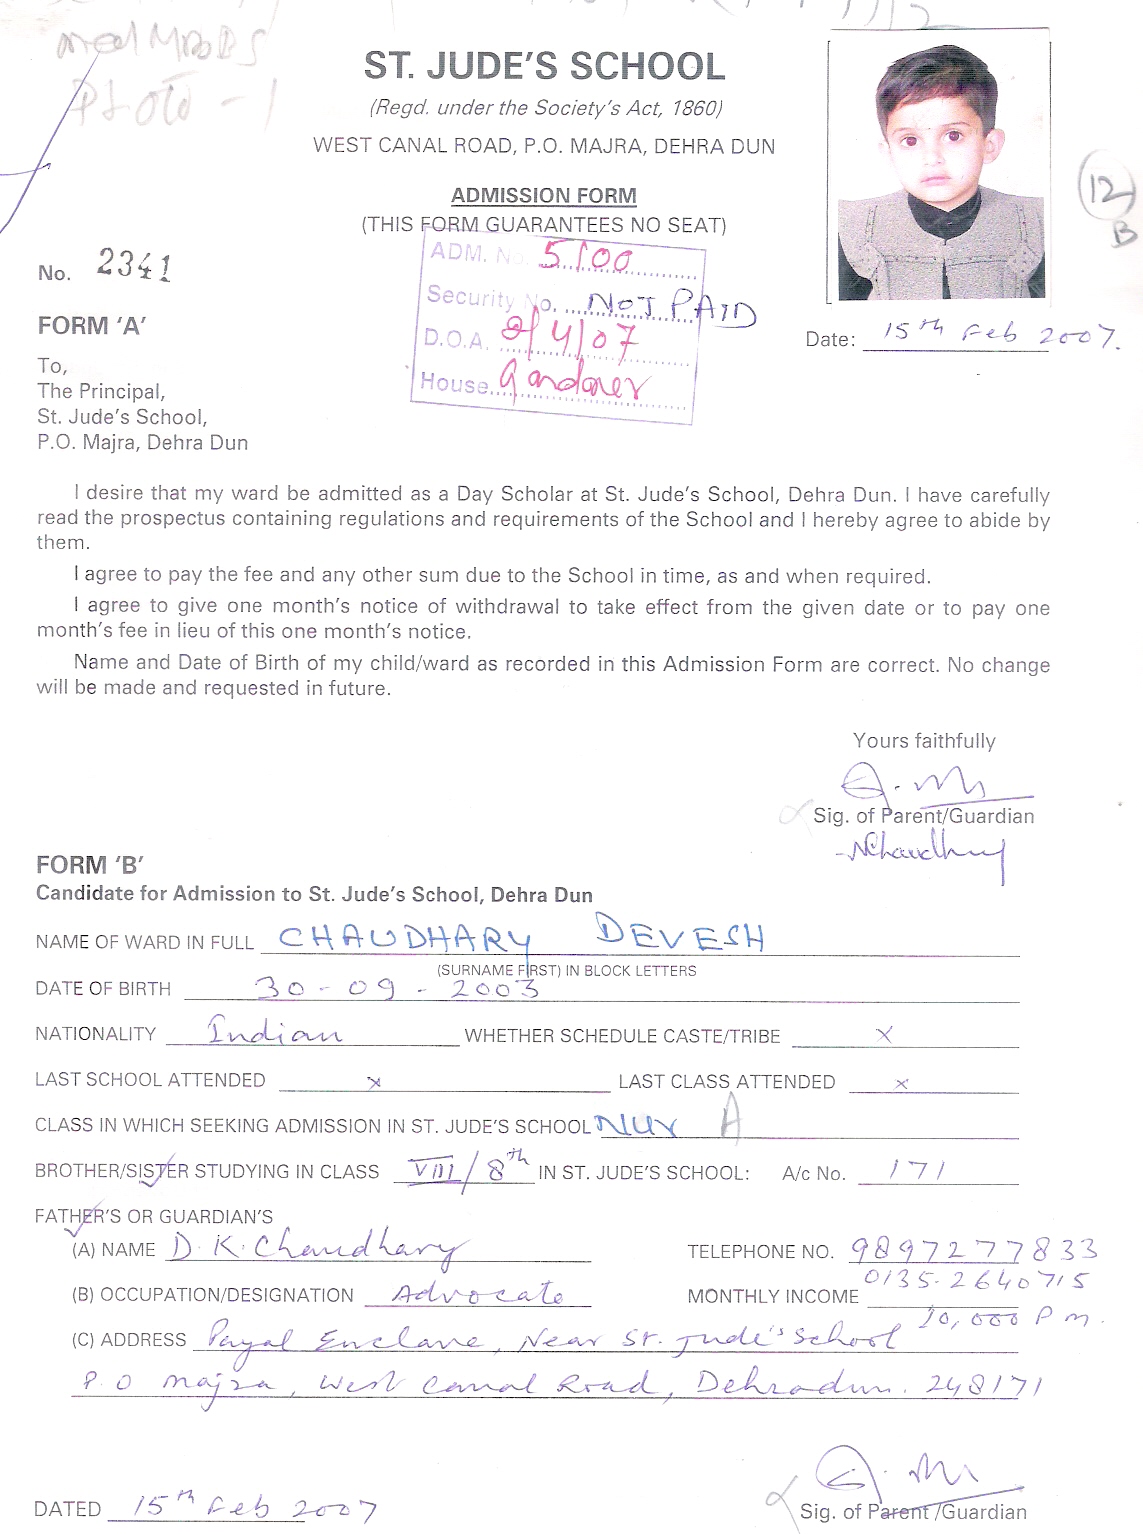 Photo - 1
ST. JUDE'S SCHOOL
(Regd. under the Society's Act, 1860)
WEST CANAL ROAD, P.O. MAJRA, DEHRA DUN
ADMISSION FORM
(THIS FORM GUARANTEES NO SEAT)
12
B
No. 2341
ADM. No. 5100
Security No. NOT PAID
D.O.A. 2/4/07
House Gardner
FORM 'A'
Date: 15th Feb 2007.
To,
The Principal,
St. Jude's School,
P.O. Majra, Dehra Dun
I desire that my ward be admitted as a Day Scholar at St. Jude's School, Dehra Dun. I have carefully
read the prospectus containing regulations and requirements of the School and I hereby agree to abide by
them.
I agree to pay the fee and any other sum due to the School in time, as and when required.
I agree to give one month's notice of withdrawal to take effect from the given date or to pay one
month's fee in lieu of this one month's notice.
Name and Date of Birth of my child/ward as recorded in this Admission Form are correct. No change
will be made and requested in future.
Yours faithfully
Sig. of Parent/Guardian
NChaudhry
FORM 'B'
Candidate for Admission to St. Jude's School, Dehra Dun
NAME OF WARD IN FULL CHAUDHARY DEVESH
(SURNAME FIRST) IN BLOCK LETTERS
DATE OF BIRTH 30-09-2003
NATIONALITY Indian WHETHER SCHEDULE CASTE/TRIBE x
LAST SCHOOL ATTENDED x LAST CLASS ATTENDED x
CLASS IN WHICH SEEKING ADMISSION IN ST. JUDE'S SCHOOL Nur A
BROTHER/SISTER STUDYING IN CLASS VIII/8th IN ST. JUDE'S SCHOOL: A/c No. 171
FATHER'S OR GUARDIAN'S
(A) NAME D.K. Chaudhary TELEPHONE NO. 9897277833
0135-2640715
(B) OCCUPATION/DESIGNATION Advocate MONTHLY INCOME 10,000 P.m.
(C) ADDRESS Payal Enclave, Near St. Jude's School
P.O Majra, West Canal Road, Dehradun. 248171
DATED 15th Feb 2007
Sig. of Parent /Guardian